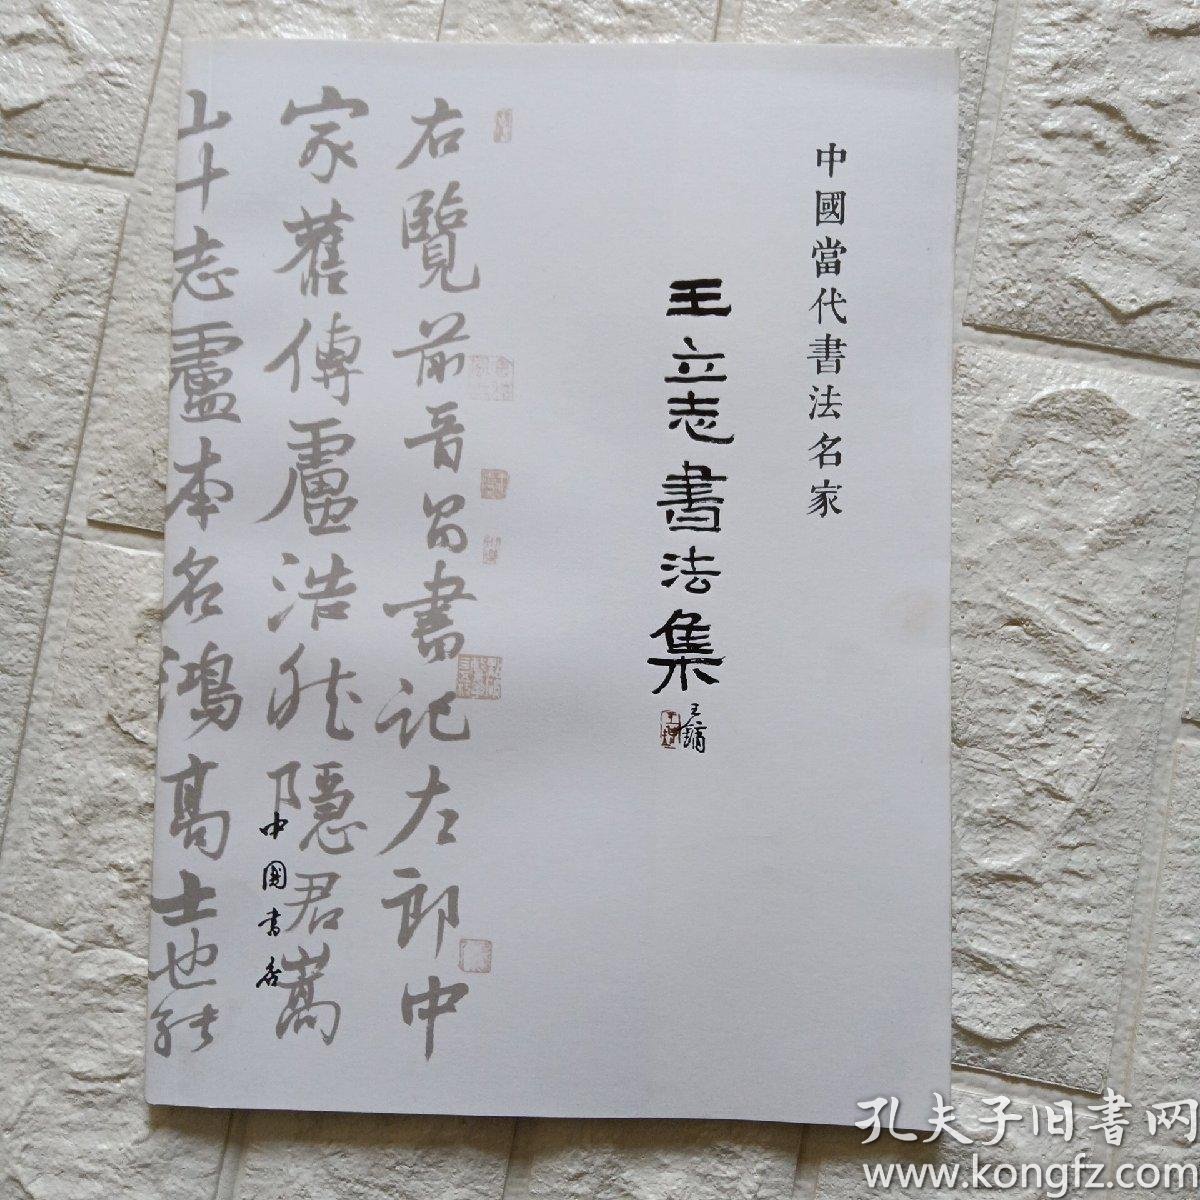 中國當代書法名家
王立志書法集
王鏞
右覽前晉昌書記左郎中
家舊傳盧浩然隱君嵩
山十志盧本名鴻高士也能
中国书店
孔夫子旧书网
www.kongfz.com